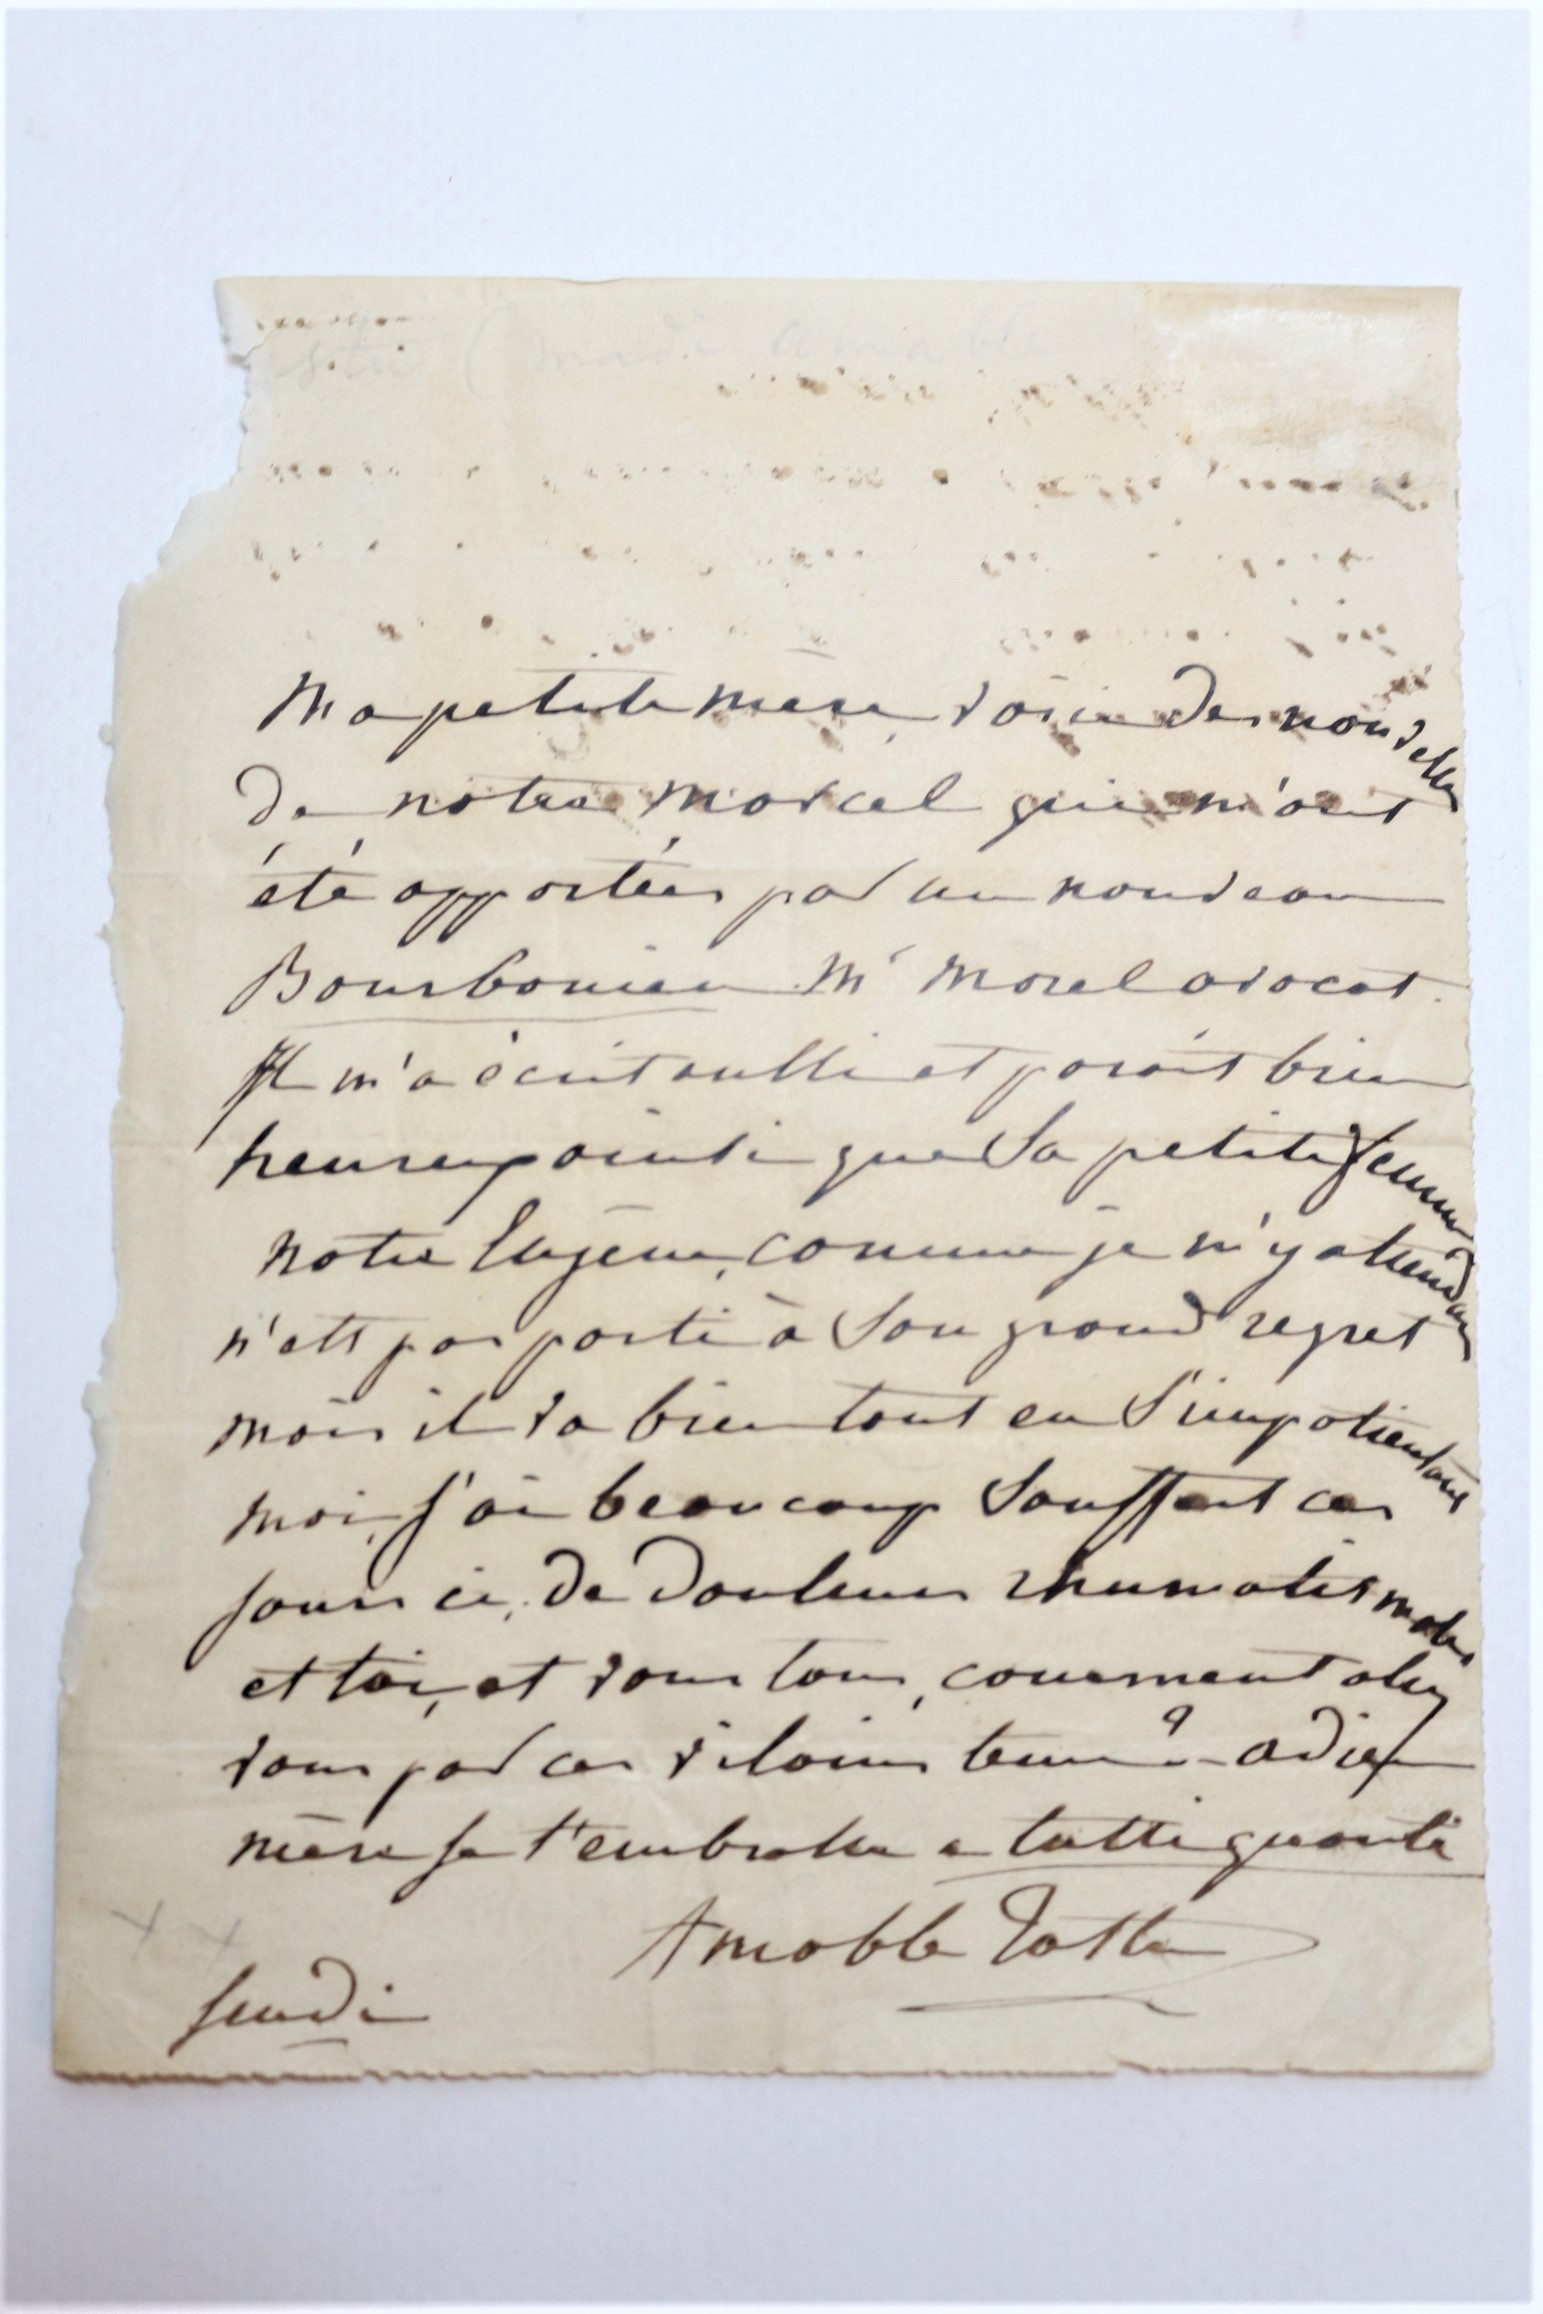 Ma petite mère, voici des nouvelles
de notre Marcel qui m'ont
été apportées par un nouveau
Bourbonien Mr Morel avocat.
Il m'a écrit aussi et parait bien
heureux ainsi que sa petite femme
notre Eugène, comme je m'y attendais
n'est pas parti à son grand regret
mais il va bien tout en s'impatientant
moi, j'ai beaucoup souffert ces
jours ci, de douleurs rhumatismales
et toi, et vous tous, comment allez
vous par ces vilains tems? - adieu
mère je t'embrasse e tutti quanti
Amable Tastu
Jeudi